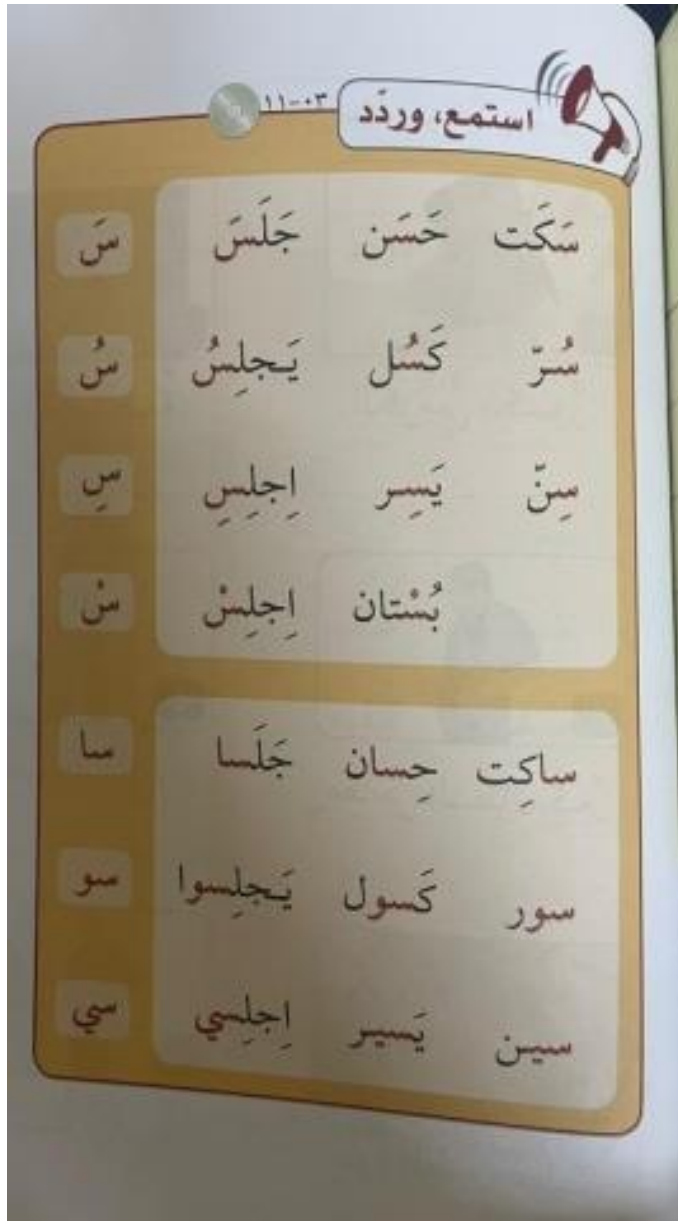 استمع، وردّد ٠٣-١١
سَكَت حَسَن جَلَسَ سَ
سُرّ كَسُل يَـجلِسُ سُ
سِنّ يَسِر اِجلِسِ سِ
بُسْتان اِجلِسْ سْ
ساكِت حِسان جَلَسا سا
سور كَسول يَـجلِسوا سو
سين يَسير اِجلِسي سي